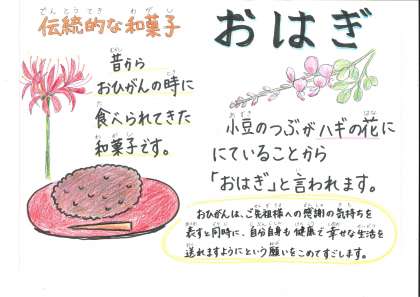 伝統的な和菓子
でんとうてき わがし
おはぎ
昔から
むかし
おひがんの時に
食べられてきた
和菓子です。
小豆のつぶがハギの花に
あずき はな
にていることから
「おはぎ」と言われます。
おひがんは、ご先祖様への感謝の気持ちを
表すと同時に、自分自身も健康で幸せな生活を
送れますようにという願いをこめてすごします。